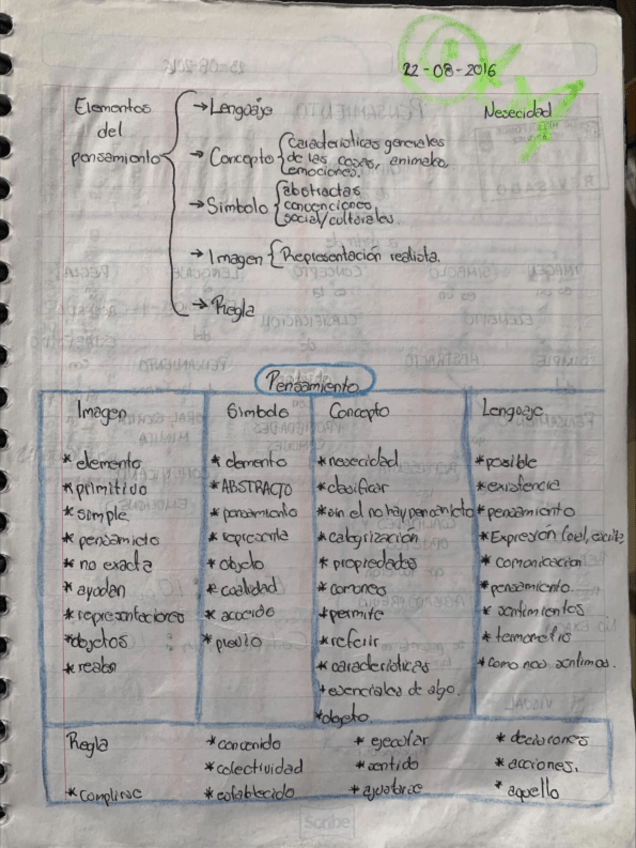 22-08-2016
Elementos del pensamiento
→ Lenguaje
Nesecidad
→ Concepto
características generales
de las cosas, animales,
emociones.
→ Simbolo
abstractas
convenciones
social/culturales.
→ Imagen
Representación realista.
→ Regla
Pensamiento
Imagen
* elemento
* primitivo
* simple
* pensamieto
* no exacta
* ayudan
* representaciones
* objetos
* reales
Simbolo
* elemento
* ABSTRACTO
* pensamiento
* representa
* objeto
* cualidad
* acuerdo
* previo
Concepto
* nesecidad
* clasificar
* sin el no hay pensamieto
* categrización
* propiedades
* comunes
* permite
* referir
* características
* esenciales de algo.
* objeto
Lenguaje
* posible
* existencia
* pensamiento
* Expresión (oral, escrita,
* comunicacion
* pensamiento.
* sentimientos
* termometro
* como nos sentimos.
Regla
* cumplirse
* contenido
* colectividad
* establecido
* ejecutar
* sentido
* ajustarse
* decisiones
* acciones.
* aquello
Scribe